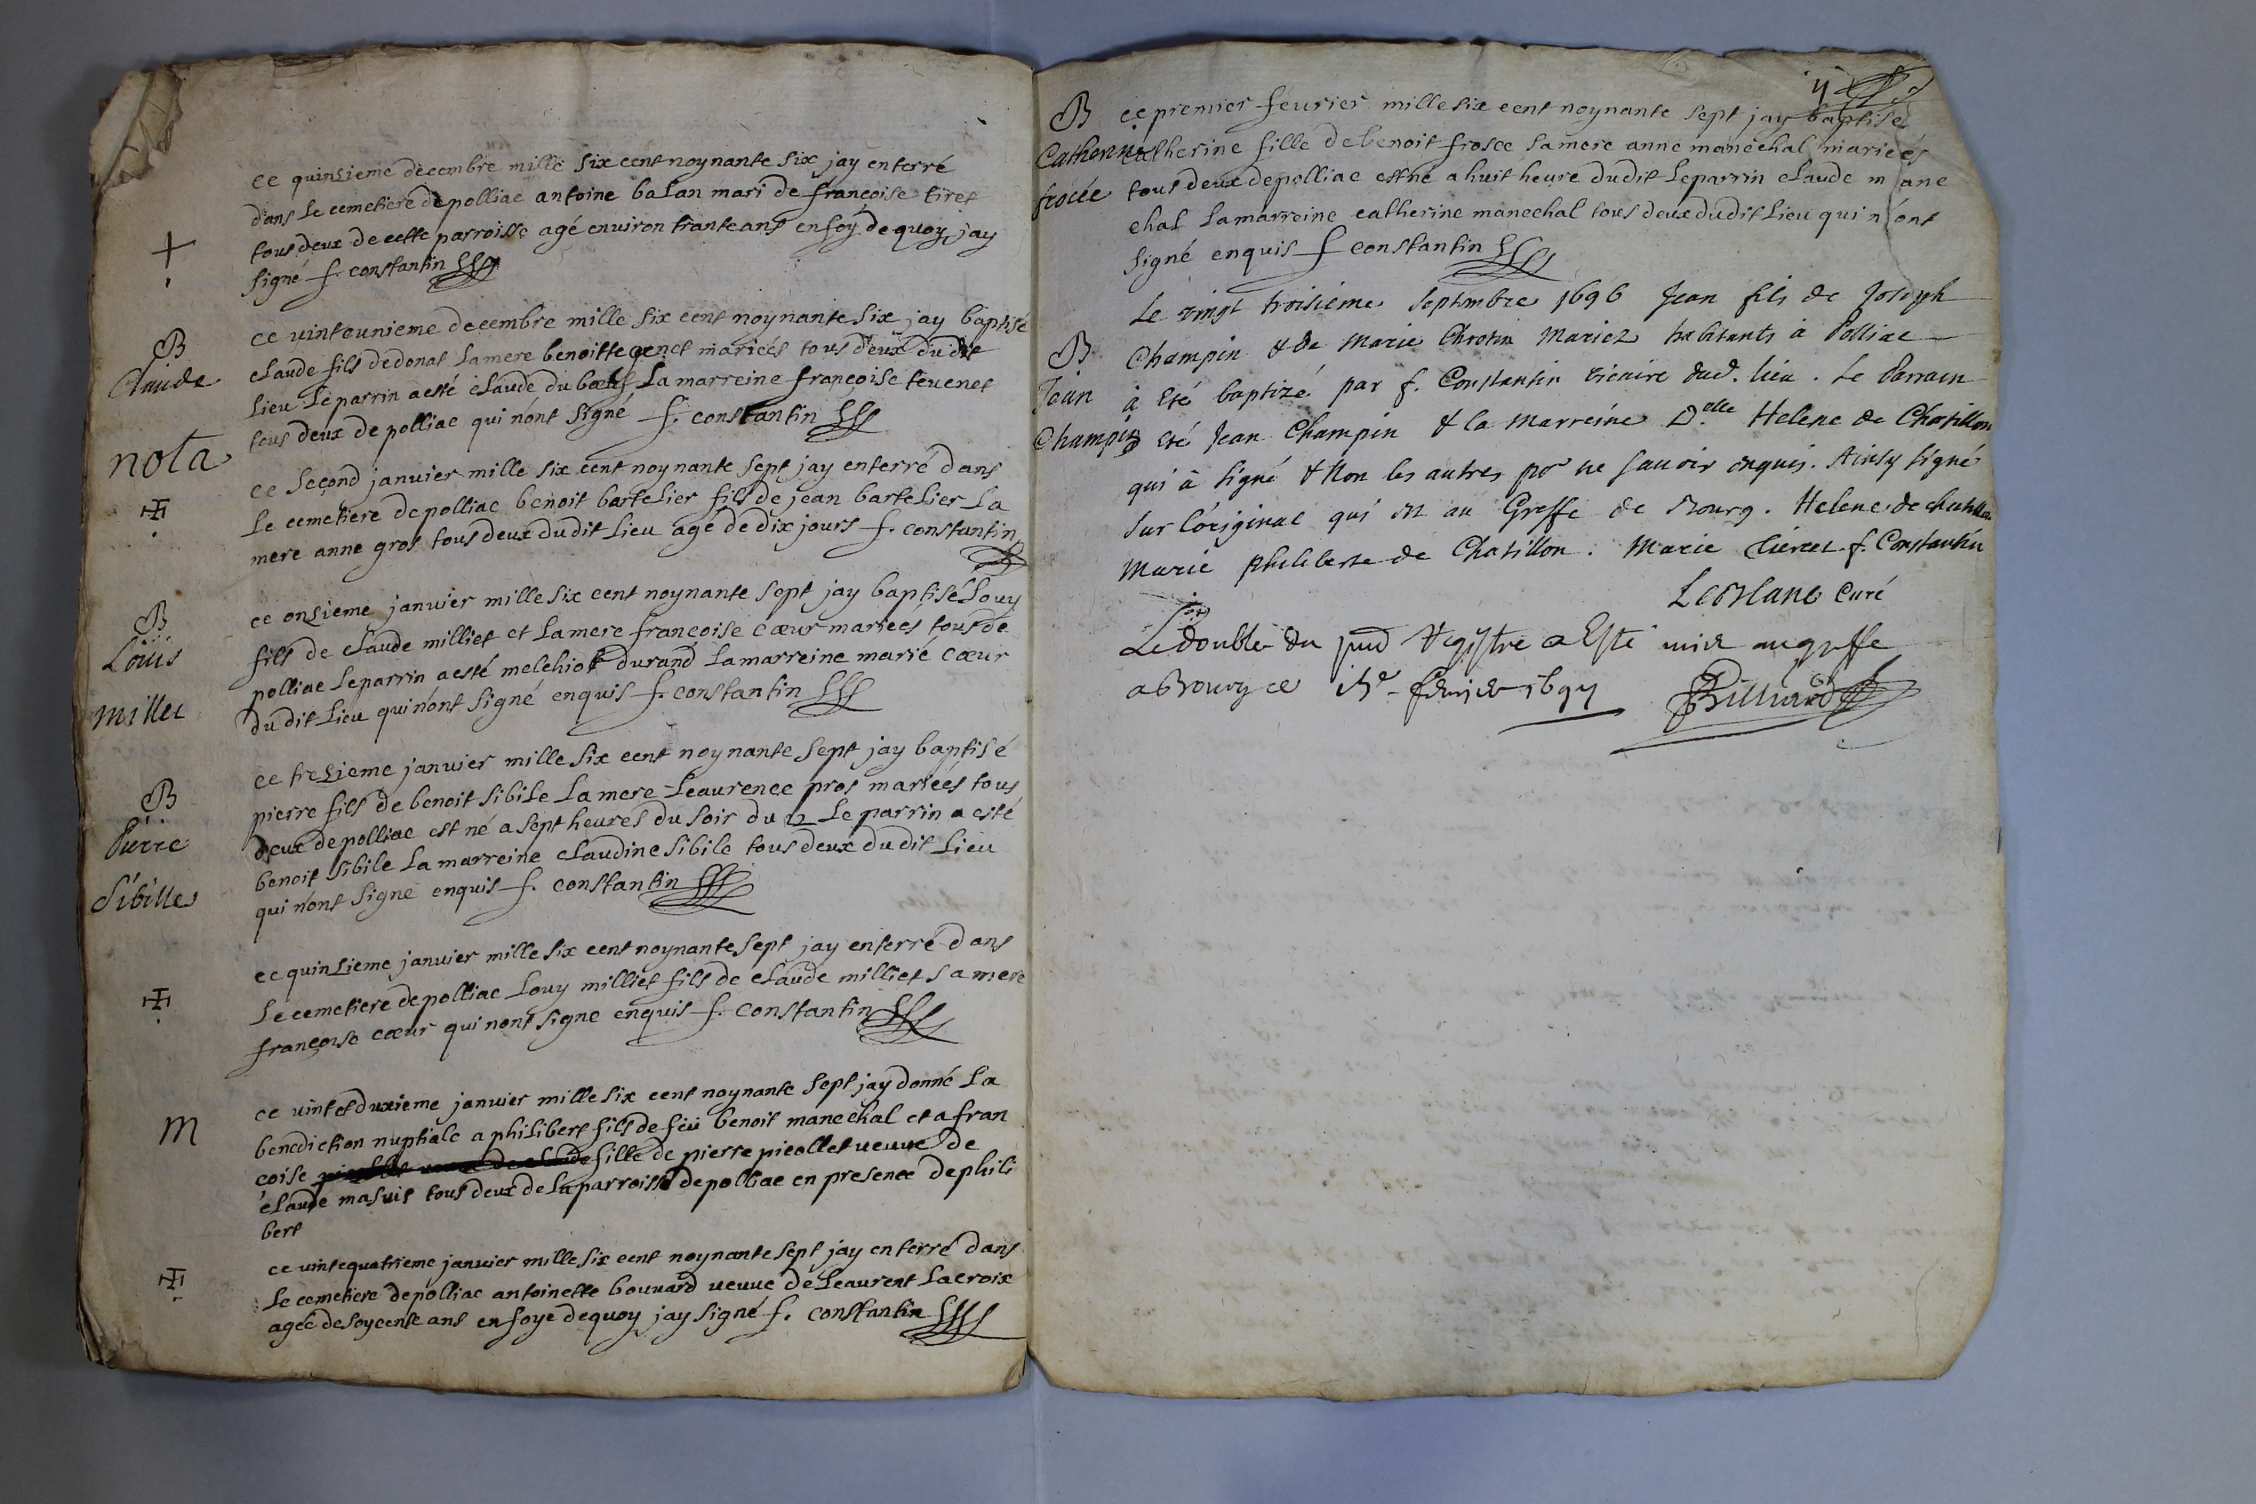 ce quinsieme decembre mille six cent noynante six jay enterré
dans le cemetiere de polliac antoine balan mari de françoise tiret
tous deux de cette parroisse agé environ trante ans en foy de quoy jay
signé f. constantin
B
Claude
ce vintounieme decembre mille six cent noynante six jay baptisé
claude fils de donat la mere benoitte genet mariées tous deux du dit
lieu le parrin a esté claude du bœuf la marreine françoise tevenet
tous deux de polliac qui nónt signé f. constantin
nota
ce second janvier mille six cent noynante sept jay enterré dans
le cemetiere de polliac benoit bartelier fils de jean bartelier la
mere anne gros tous deux du dit lieu agé de dix jours f. constantin
B
Loüis
millet
ce onsieme janvier mille six cent noynante sept jay baptisé Louy
fils de claude milliet et la mere françoise cœur mariées tous de
polliac le parrin a esté melchiot durand la marreine marie cœur
du dit lieu qui nónt signé enquis f. constantin
B
Pierre
Sibille
ce tresieme janvier mille six cent noynante sept jay baptisé
pierre fils de benoit sibile la mere Leaurence pros mariées tous
deux de polliac est né a sept heures du soir du 12 le parrin a esté
benoit sibile la marreine claudine sibile tous deux du dit lieu
qui nónt signe enquis f. constantin
ce quinsieme janvier mille six cent noynante sept jay enterré dans
le cemetiere de polliac Louy milliet fils de claude milliet sa mere
françoise cœur qui nont signe enquis f. constantin
M
ce vintetduxieme janvier mille six cent noynante sept jay donné la
benediction nuptiale a philibert fils de feü benoit manechal et a fran
coise fille de pierre picollet veuve de
claude masuit tous deux de la parroisse de polliac en presence de phili
bert
ce vintequatrieme janvier mille six cent noynante sept jay enterré dans
le cemetiere de polliac antoinette bouvard veuve de Leaurent Lacroix
agée de soycente ans en foye de quoy jay signé f. constantin
B
Catherine
frocée
ce premier feurier mille six cent noynante sept jay baptisé
catherine fille de benoit frosce sa mere anne manechal mariées
tous deux de polliac est né a huit heure du dit le parrin claude mane
chal la marreine catherine manechal tous deux du dit lieu qui n'ont
signé enquis f constantin
B
Jean
Champin
Le vingt troisième septembre 1696 Jean fils de Joseph
Champin & de Marie Chrotin Mariez habitants à Polliac
à Eté baptizé par f. Constantin vicaire dud. lieu. Le Parrain
a eté Jean Champin & la Marreine D.elle Helene de Chatillon
qui à signé & Non les autres por ne savoir enquis. Ainsy signé
sur l'original qui est au Greffe de Bourg. Helene de chatillon
Marie philiberte de Chatillon. Marie f. Constantin
Leblanc Curé
Le double du pnt Registre a Esté mis au greffe
a Bourg ce feurier 1697
Billiard